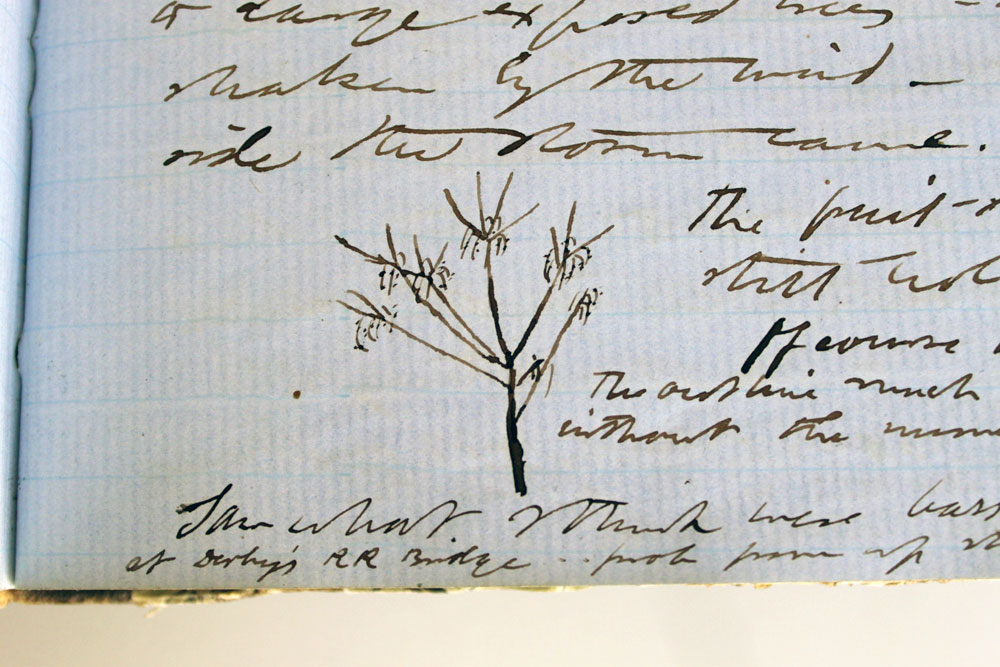 a large exposed trees –
shaken by the wind –
side the storm came.
The fruit-
still hol
Of course
The outline much
without the
Saw what I think were bass
at Derby's RR Bridge .. prob from up